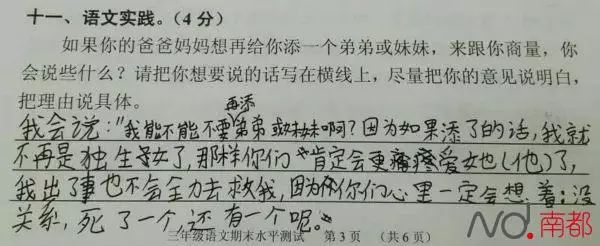 十一、语文实践。（4分）
如果你的爸爸妈妈想再给你添一个弟弟或妹妹，来跟你商量，你
会说些什么？请把你想要说的话写在横线上，尽量把你的意见说明白，
把理由说具体。
再添
我会说："我能不能不要弟弟或妹妹啊？因为如果添了的话，我就
不再是独生子女了，那样你们肯定会更疼爱她（他）了，
我出了事也不会全力去救我，因为你们心里一定会想着：没
关系，死了一个，还有一个呢。"
三年级语文期末水平测试 第3页 （共6页）
nd.南都